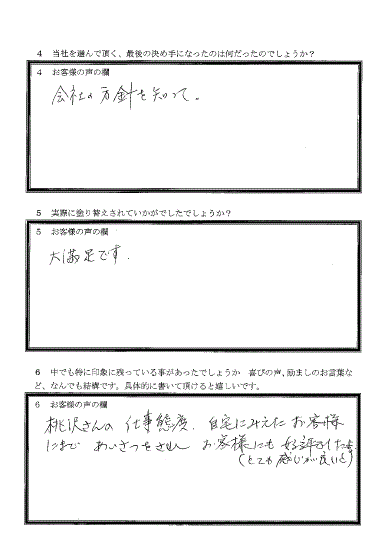 4 当社を選んで頂く、最後の決め手になったのは何だったのでしょうか？
4 お客様の声の欄
会社の方針を知って。
5 実際に塗り替えされていかがでしたでしょうか？
5 お客様の声の欄
大満足です.
6 中でも特に印象に残っている事があったでしょうか 喜びの声、励ましのお言葉な
ど、なんでも結構です。具体的に書いて頂けると嬉しいです。
6 お客様の声の欄
桃沢さんの仕事態度、自宅にみえたお客様
にまで あいさつをされ お客様にも 好評でした
(とても感じが良いと)